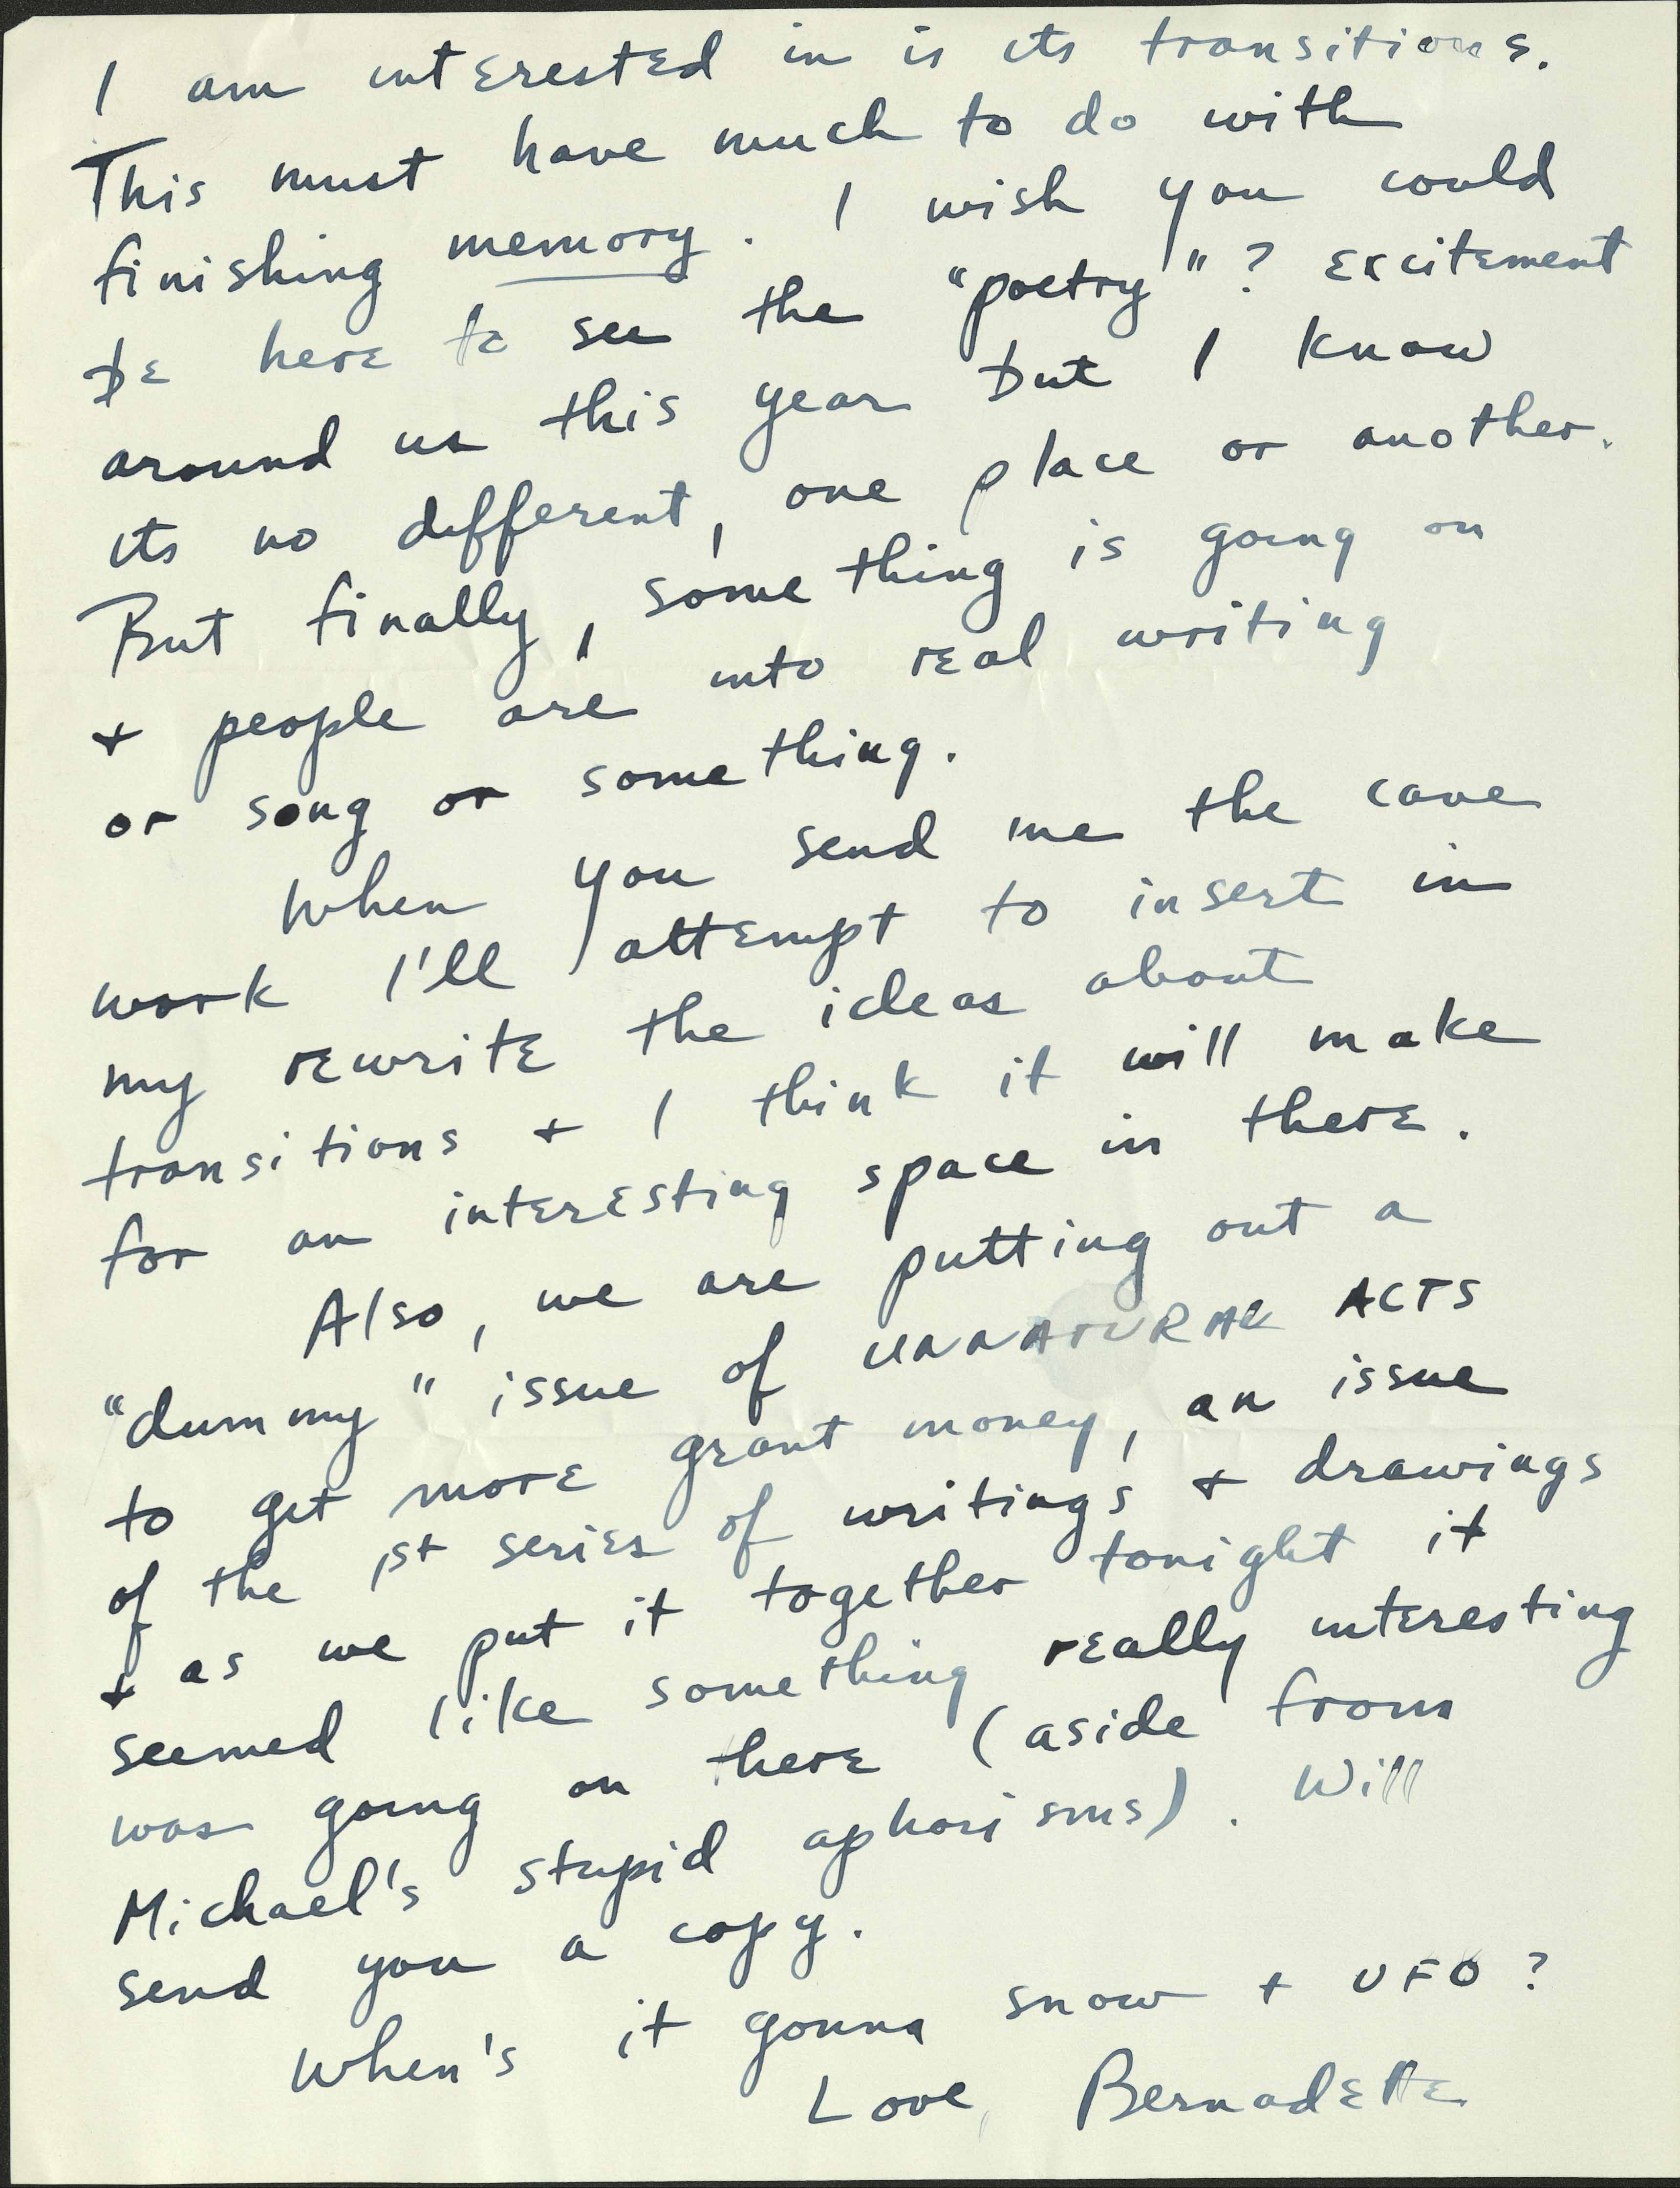 I am interested in is its transitions.
This must have much to do with
finishing memory. I wish you could
be here to see the "poetry"? excitement
around us this year but I know
its no different, one place or another.
But finally, something is going on
+ people are into real writing
or song or something.
When you send me the cave
work I'll attempt to insert in
my rewrite the ideas about
transitions + I think it will make
for an interesting space in there.
Also, we are putting out a
"dummy" issue of ACTS
to get more grant money, an issue
of the 1st series of writings + drawings
+ as we put it together tonight it
seemed like something really interesting
was going on there (aside from
Michael's stupid aphorisms). Will
send you a copy.
When's it gonna snow + UFO?
Love, Bernadette